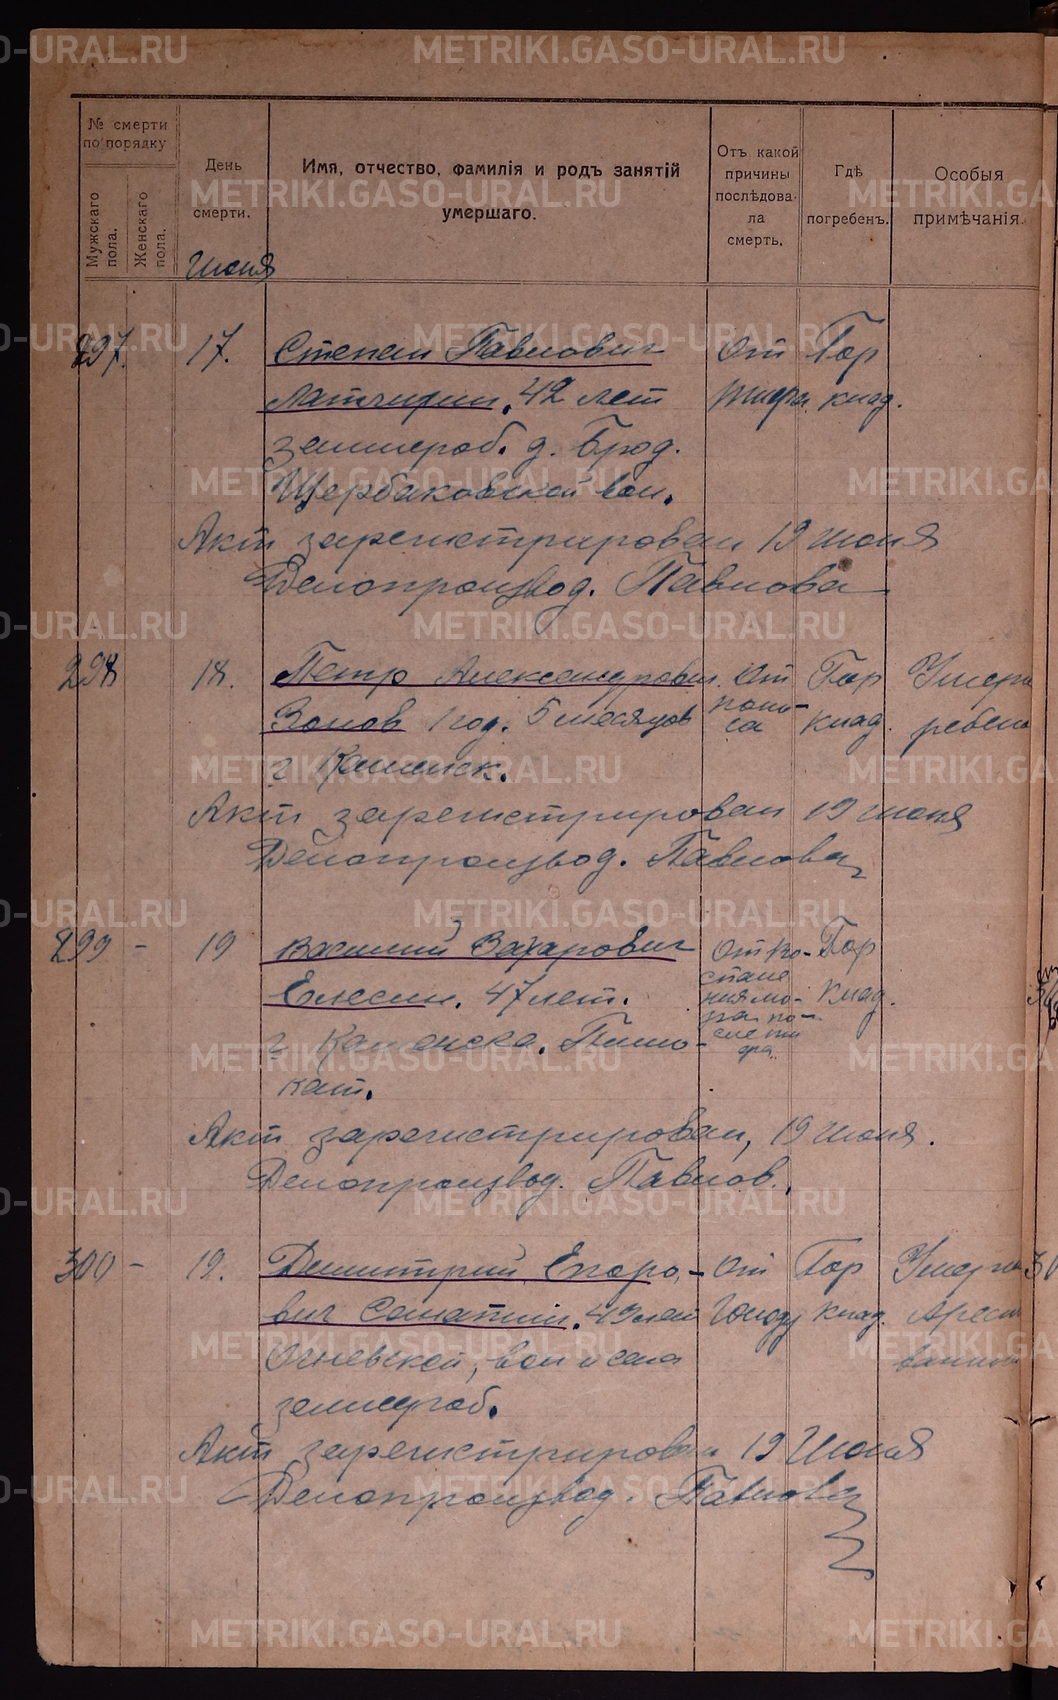 № смерти
по порядку
Мужскаго
пола.
Женскаго
пола.
День
смерти.
Июня
Имя, отчество, фамилія и родъ занятій
умершаго.
Отъ какой
причины
послѣдова-
ла
смерть.
Гдѣ
погребенъ.
Особыя
примѣчанія.
297. 17. Степан Павлович От Гор
42 лет тифа клад.
землероб. д. Брод.
Щербаковской вол.
Акт зарегистрирован 19 июня
Делопроизвод. Павлова
298 18. Петр Александрович От Гор Умерш
Зонов 1 год. 5 месяцов поно- клад. ребено
са
г. Каменск.
Акт зарегистрирован 19 июня
Делопроизвод. Павлова
299 - 19 Василий Захарович От Гор
Елесин. 47 лет. клад.
г. Каменска. Пимо-
кат.
Акт зарегистрирован, 19 июня.
Делопроизвод. Павлов.
300 - 19. Димитрий Егоро- От Гор Умерш
вич 49 лет Голоду клад. Арест
Огневской, вол и села ванный
землероб.
Акт зарегистрирован 19 Июня
Делопроизвод. Павлова
METRIKI.GASO-URAL.RU